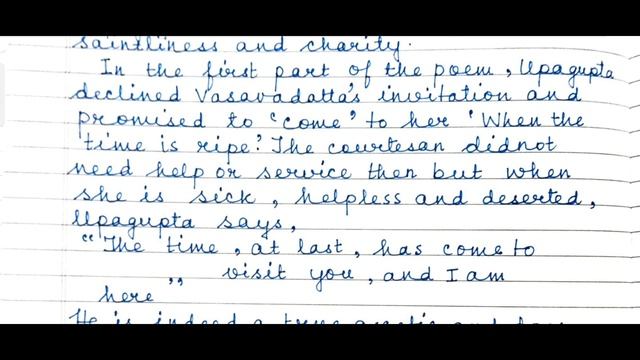 saintliness and charity.
In the first part of the poem, Upagupta
declined Vasavadatta's invitation and
promised to "come" to her 'When the
time is ripe'. The courtesan didnot
need help or service then but when
she is sick, helpless and deserted,
Upagupta says,
"The time, at last, has come to
visit you, and I am
here"
He is indeed a true